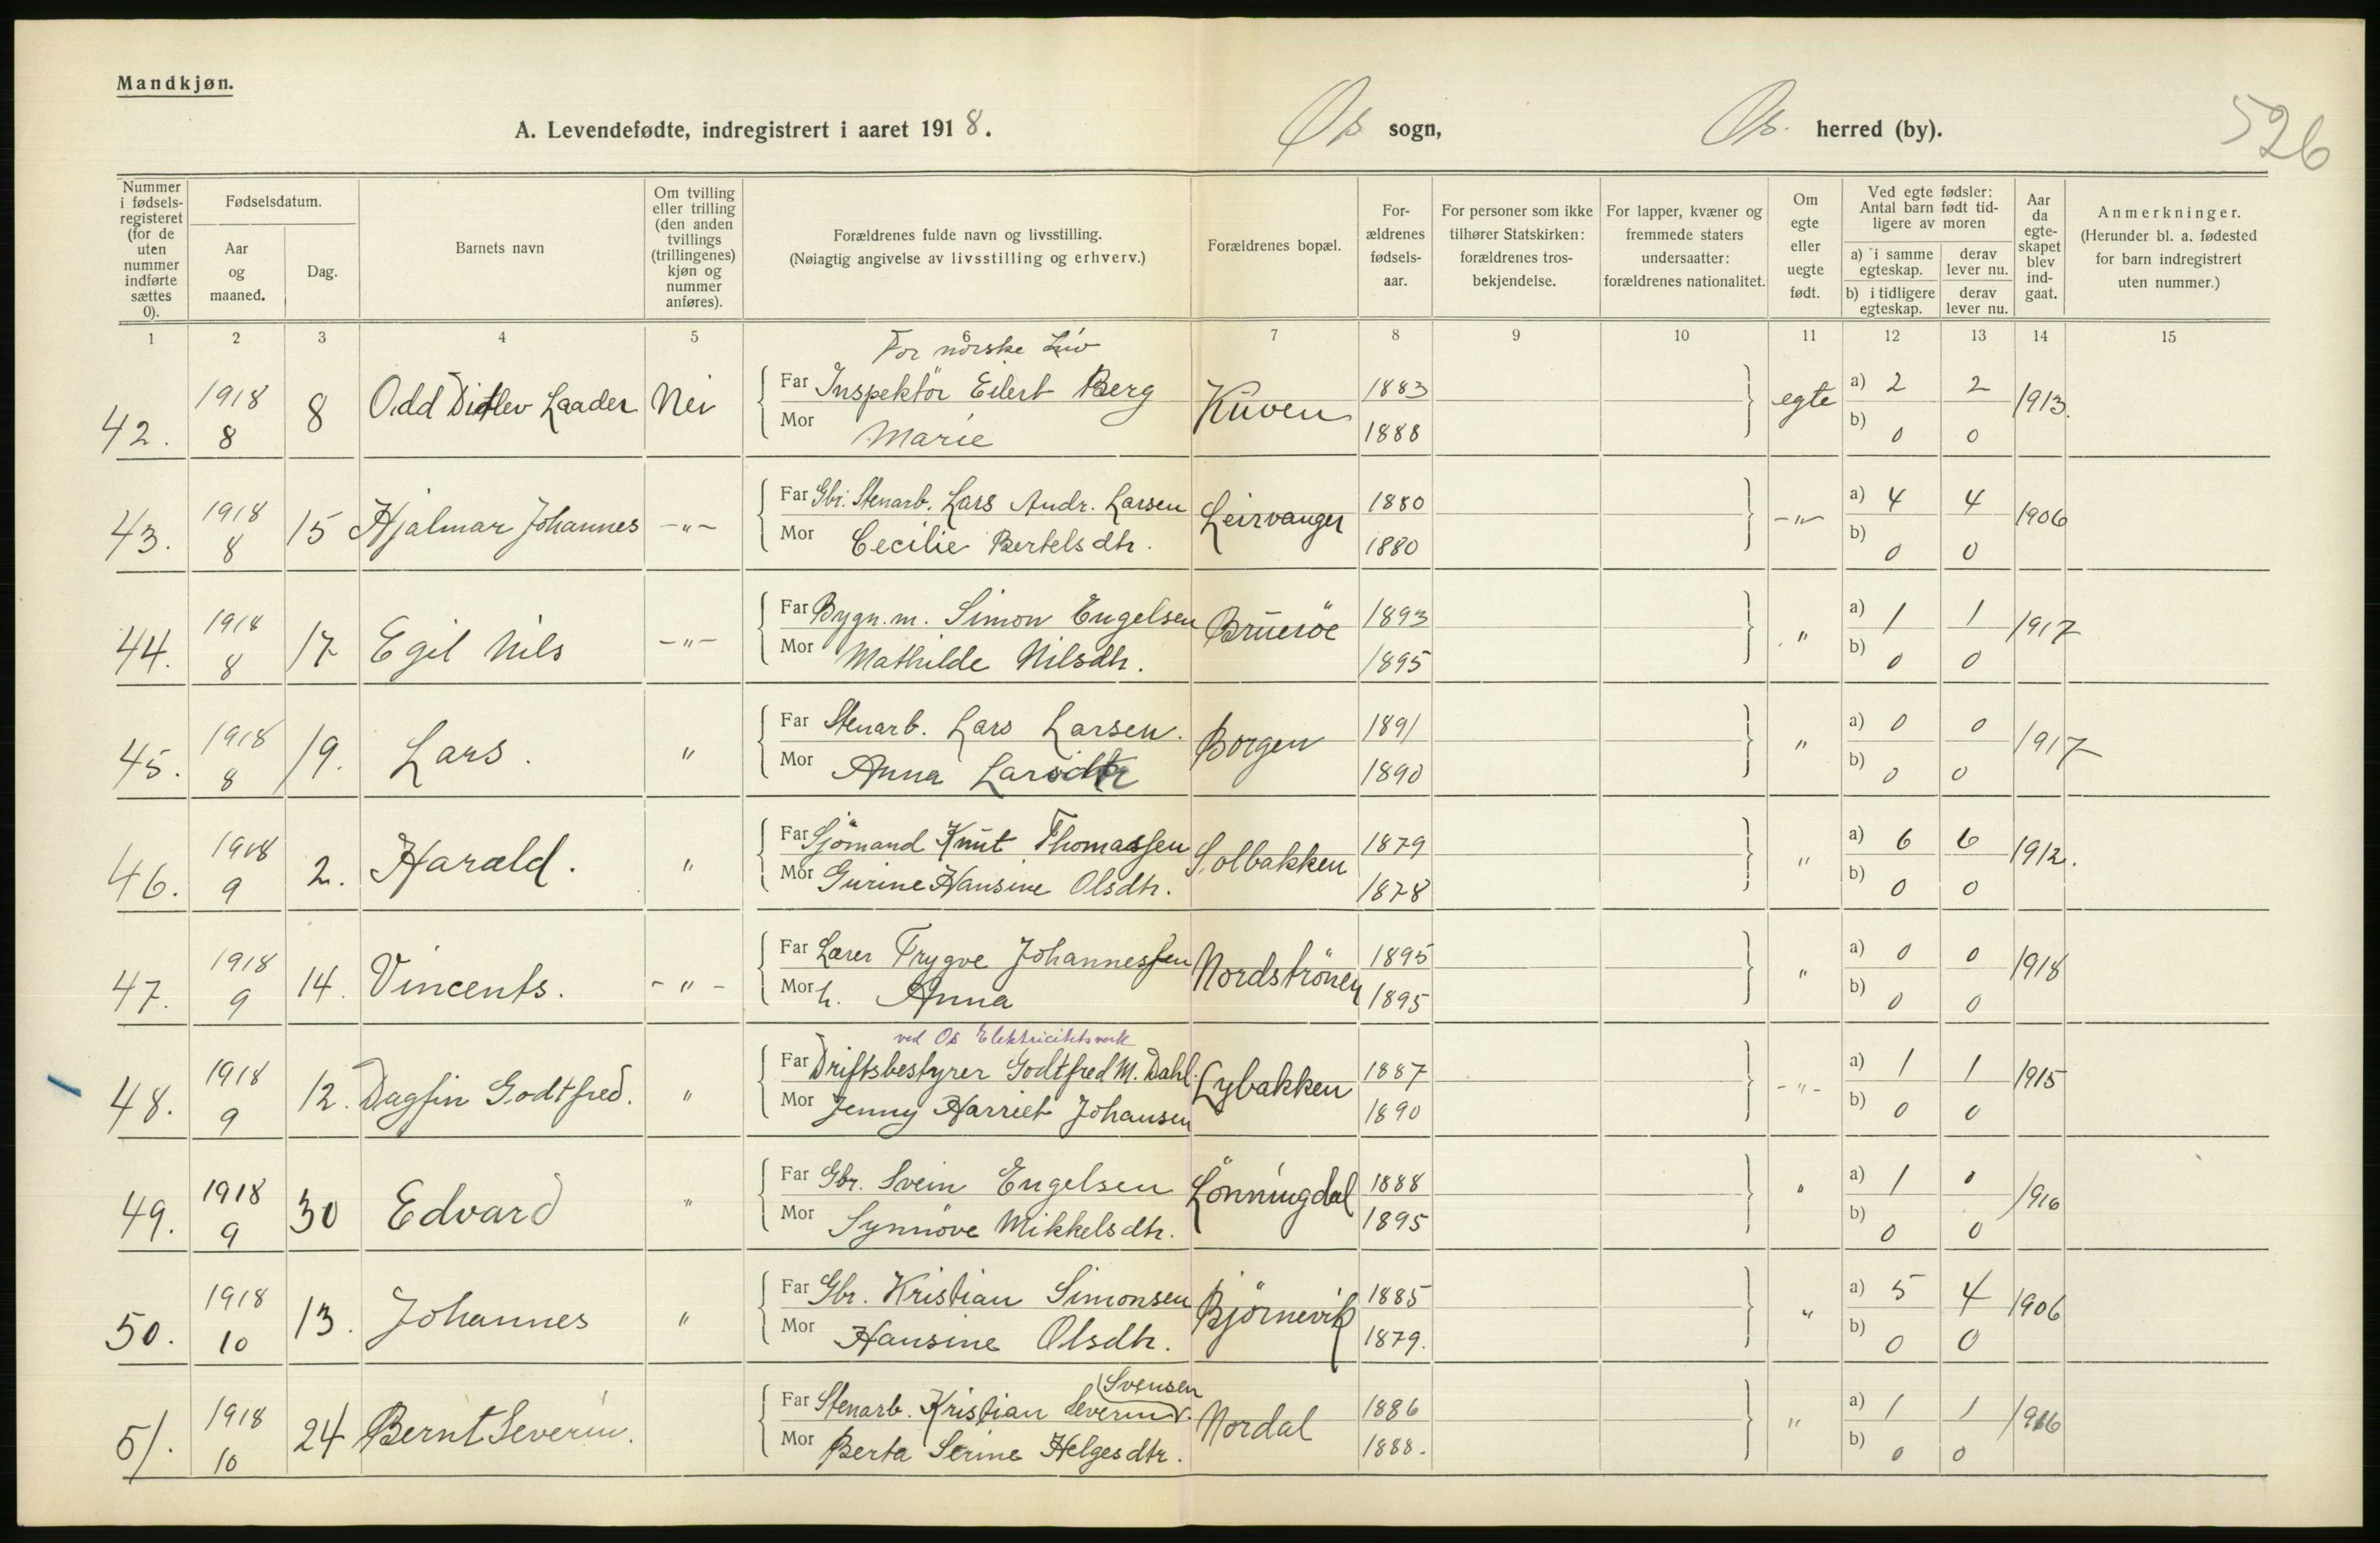 Mandkjøn.
A. Levendefødte, indregistrert i aaret 1918.
Os sogn,
Os. herred (by).
526
Nummer i fødsels-registeret (for de uten nummer indførte sættes 0).
Fødselsdatum.
Aar og maaned.
Dag.
Barnets navn
Om tvilling eller trilling (den anden tvillings (trillingenes) kjøn og nummer anføres).
Forældrenes fulde navn og livsstilling.
(Nøiagtig angivelse av livsstilling og erhverv.)
Forældrenes bopæl.
For-ældrenes fødsels-aar.
For personer som ikke tilhører Statskirken: forældrenes tros-bekjendelse.
For lapper, kvæner og fremmede staters undersaatter: forældrenes nationalitet.
Om egte eller uegte født.
Ved egte fødsler: Antal barn født tid-ligere av moren
a) i samme egteskap.
derav lever nu.
b) i tidligere egteskap.
derav lever nu.
Aar da egte-skapet blev ind-gaat.
Anmerkninger.
(Herunder bl. a. fødested for barn indregistrert uten nummer.)
1 2 3 4 5 6 7 8 9 10 11 12 13 14 15
For norske Liv
42. 1918 8 8 Odd Ditlev Laader Nei Far Inspektör Eilert Berg Kuven 1883 egte a) 2 2 1913.
Mor Marie 1888 b) 0 0
43. 1918 8 15 Hjalmar Johannes -"- Far Gbr. Stenarb. Lars Andr. Larsen Leirvanger 1880 -"- a) 4 4 1906
Mor Cecilie Bertelsdtr. 1880 b) 0 0
44. 1918 8 17 Egil Nils -"- Far Bygn.m. Simon Engelsen Brueröe 1893 " a) 1 1 1917
Mor Mathilde Nilsdtr. 1895 b) 0 0
45. 1918 8 19. Lars. " Far Stenarb. Lars Larsen. Borgen 1891 " a) 0 0 1917
Mor Anna Larsdtr 1890 b) 0 0
46. 1918 9 2. Harald. " Far Sjömand Knut Thomassen Solbakken 1879 " a) 6 6 1912.
Mor Gurine Hansine Olsdtr. 1878 b) 0 0
47. 1918 9 14. Vincents. -"- Far Lærer Trygve Johannessen Nordströnen 1895 " a) 0 0 1918
Mor h. Anna 1895 b) 0 0
ved Os Elektricitetsverk
48. 1918 9 12. Dagfin Godtfred. " Far Driftsbestyrer Godtfred M. Dahl. Lybakken 1887 -"- a) 1 1 1915
Mor Jenny Harriet Johansen 1890 b) 0 0
49. 1918 9 30 Edvard " Far Gbr. Svein Engelsen Lönningdal 1888 " a) 1 0 1916
Mor Synnöve Mikkelsdtr. 1895 b) 0 0
50. 1918 10 13. Johannes " Far Gbr. Kristian Simonsen Björnevik 1885 " a) 5 4 1906
Mor Hansine Olsdtr. 1879. b) 0 0
(Svensen
51. 1918 10 24 Bernt Severin. Far Stenarb. Kristian Severin Nordal 1886 " a) 1 1 1916
Mor Berta Serine Helgesdtr. 1888. b) 0 0